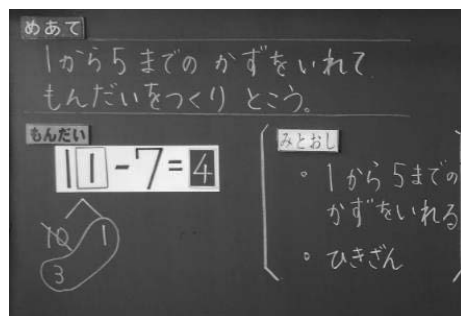 めあて
1から5までの かずをいれて
もんだいをつくり とこう。
もんだい
11-7=4
10 1
3
みとおし
・1から5までの
かずをいれる
・ひきざん